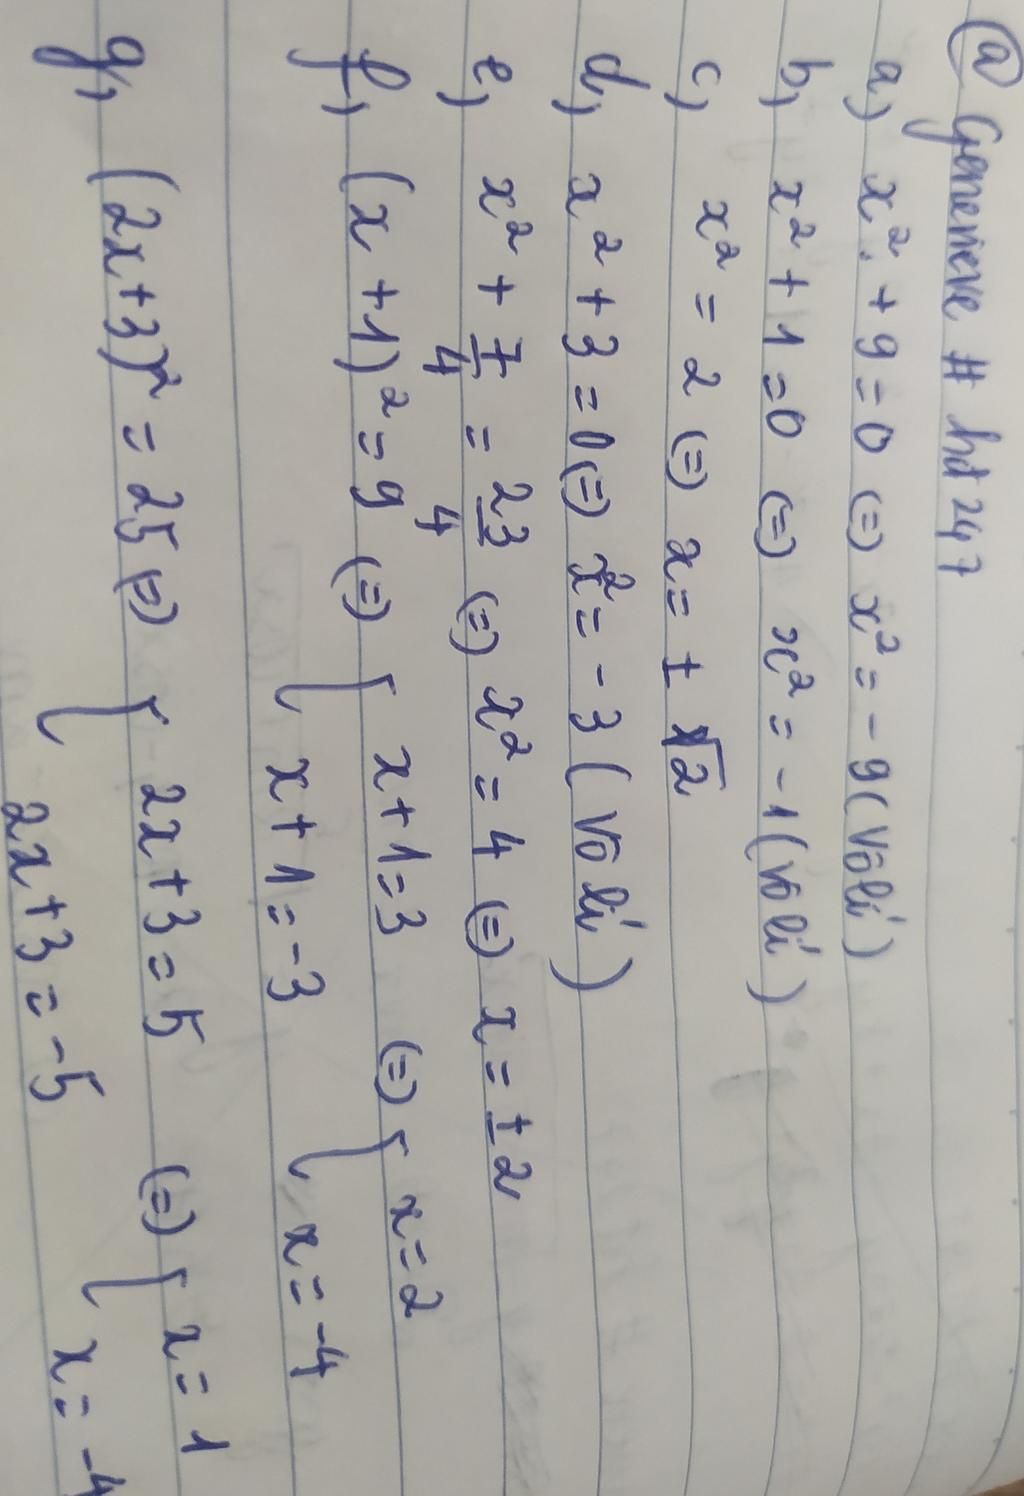 @ Generieve # hd247
a) x² + 9 = 0 (=) x² = -9 (Vô lí)
b) x² + 1 = 0 (=) x² = -1 (Vô lí)
c) x² = 2 (=) x = ± √2
d) x² + 3 = 0 (=) x² = -3 (Vô lí)
e) x² + 7/4 = 23/4 (=) x² = 4 (=) x = ± 2
f) (x + 1)² = 9 (=) [ x + 1 = 3 (=) [ x = 2
x + 1 = -3 x = -4
g) (2x + 3)² = 25 (=) [ 2x + 3 = 5 (=) [ x = 1
2x + 3 = -5 x = -4